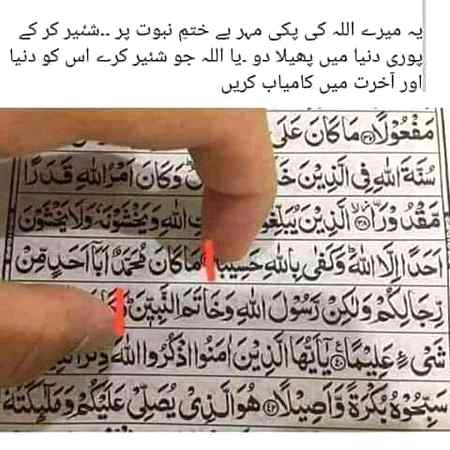 یہ میرے اللہ کی پکی مہر ہے ختمِ نبوت پر ..شئیر کر کے
پوری دنیا میں پھیلا دو ۔یا اللہ جو شئیر کرے اس کو دنیا
اور آخرت میں کامیاب کریں
مَفْعُوْلًا ۝۳۷ مَا كَانَ عَلَى
سُنَّةَ اللّٰهِ فِي الَّذِيْنَ وَكَانَ اَمْرُ اللّٰهِ قَدَرًا
مَّقْدُوْرًا ۝۳۸ الَّذِيْنَ اللّٰهِ وَيَخْشَوْنَهٗ وَلَا يَخْشَوْنَ
اَحَدًا اِلَّا اللّٰهَ وَكَفٰى بِاللّٰهِ حَسِيْبًا مَا كَانَ مُحَمَّدٌ اَبَاۤ اَحَدٍ مِّنْ
رِّجَالِكُمْ وَلٰكِنْ رَّسُوْلَ اللّٰهِ وَخَاتَمَ النَّبِيّٖنَ
شَيْءٍ عَلِيْمًا ۝۴۰ يٰۤاَيُّهَا الَّذِيْنَ اٰمَنُوا اذْكُرُوا اللّٰهَ
سَبِّحُوْهُ بُكْرَةً وَّاَصِيْلًا ۝۴۲ هُوَ الَّذِيْ يُصَلِّيْ عَلَيْكُمْ وَمَلٰٓئِكَتُهٗ